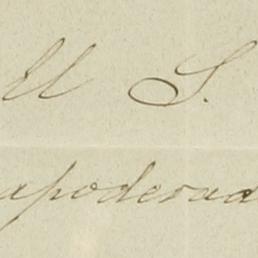 El S.
apoderad